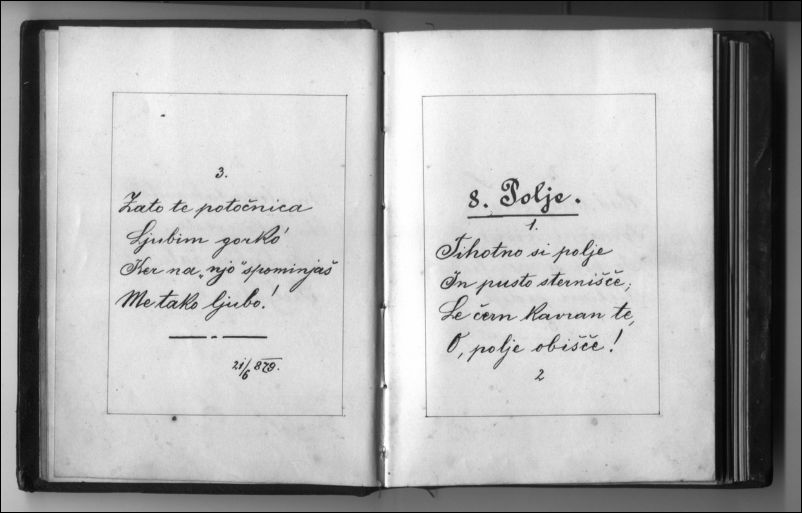 3.
Zato te potočnica
Ljubim gorkó
Ker na „njo“ spominjaš
Me tako ljubo!
21/6 879.
8. Polje.
1.
Tihotno si polje
In pusto sternišče;
Le čern kavran te,
O, polje obišče!
2